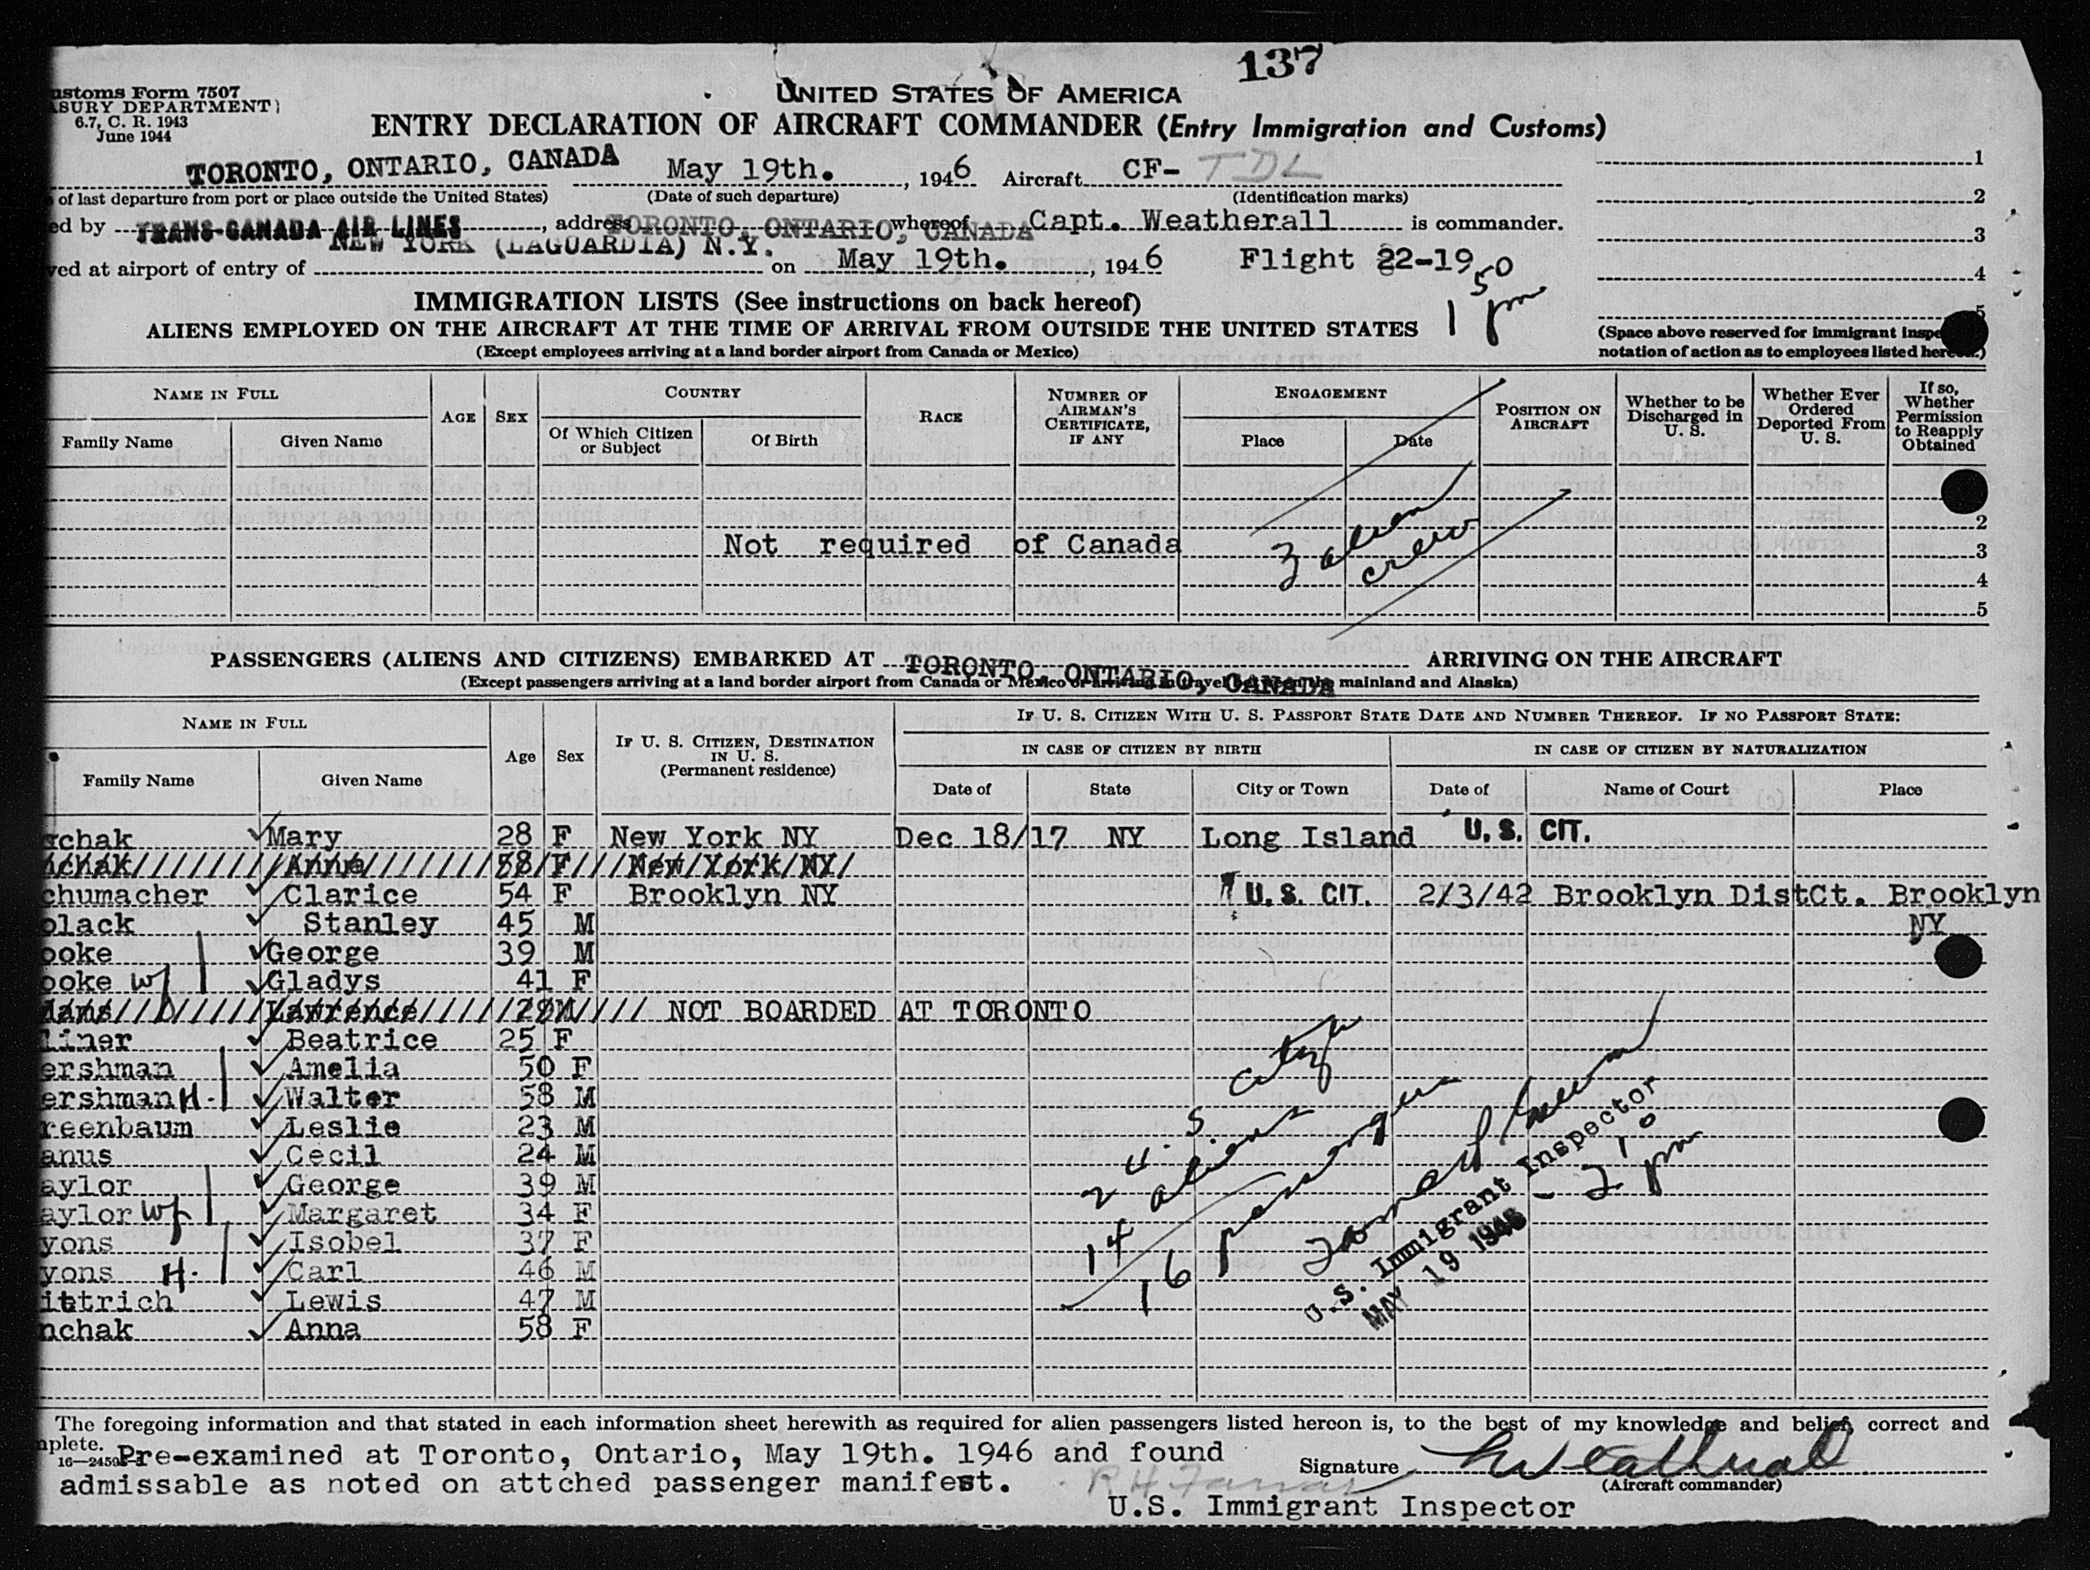 137
ustoms Form 7507
ASURY DEPARTMENT)
6.7, C. R. 1943
June 1944
UNITED STATES OF AMERICA
ENTRY DECLARATION OF AIRCRAFT COMMANDER (Entry Immigration and Customs)
TORONTO, ONTARIO, CANADA May 19th. , 1946 Aircraft CF-TDL 1
of last departure from port or place outside the United States) (Date of such departure) (Identification marks)
2
ed by TRANS-CANADA AIR LINES , address TORONTO, ONTARIO, CANADA whereof Capt. Weatherall is commander.
3
ved at airport of entry of NEW YORK (LAGUARDIA) N.Y. on May 19th. , 1946 Flight 22-19 4
1 50 pm
IMMIGRATION LISTS (See instructions on back hereof)
5
ALIENS EMPLOYED ON THE AIRCRAFT AT THE TIME OF ARRIVAL FROM OUTSIDE THE UNITED STATES
(Except employees arriving at a land border airport from Canada or Mexico)
(Space above reserved for immigrant inspe
notation of action as to employees listed here )
NAME IN FULL AGE SEX COUNTRY RACE NUMBER OF AIRMAN'S CERTIFICATE, IF ANY ENGAGEMENT POSITION ON AIRCRAFT Whether to be Discharged in U. S. Whether Ever Ordered Deported From U. S. If so, Whether Permission to Reapply Obtained
Family Name Given Name Of Which Citizen or Subject Of Birth Place Date
2
Not required of Canada 3 alien crew 3
4
5
PASSENGERS (ALIENS AND CITIZENS) EMBARKED AT TORONTO, ONTARIO, CANADA ARRIVING ON THE AIRCRAFT
(Except passengers arriving at a land border airport from Canada or Mexico or arriving in travel between the mainland and Alaska)
NAME IN FULL Age Sex IF U. S. CITIZEN, DESTINATION IN U. S. (Permanent residence) IF U. S. CITIZEN WITH U. S. PASSPORT STATE DATE AND NUMBER THEREOF. IF NO PASSPORT STATE:
IN CASE OF CITIZEN BY BIRTH IN CASE OF CITIZEN BY NATURALIZATION
Family Name Given Name Date of State City or Town Date of Name of Court Place
chak Mary 28 F New York NY Dec 18/17 NY Long Island U. S. CIT.
nchak Anna 58 F New York NY
chumacher Clarice 54 F Brooklyn NY U. S. CIT. 2/3/42 Brooklyn DistCt. Brooklyn
NY
olack Stanley 45 M
ooke George 39 M
ooke wf Gladys 41 F
dams Lawrence 29 M NOT BOARDED AT TORONTO
liner Beatrice 25 F
ershman Amelia 50 F
ershman H. Walter 58 M
reenbaum Leslie 23 M
anus Cecil 24 M
aylor George 39 M
aylor wf Margaret 34 F
yons Isobel 37 F
yons H. Carl 46 M
ittrich Lewis 47 M
nchak Anna 58 F
2 U.S. citz
14 aliens
16 passengers
U.S. Immigrant Inspector
MAY 19 1946 - 2 10 pm
The foregoing information and that stated in each information sheet herewith as required for alien passengers listed hereon is, to the best of my knowledge and belief, correct and
mplete.
16—2459
Pre-examined at Toronto, Ontario, May 19th. 1946 and found
admissable as noted on attched passenger manifest.
Signature Weatherall
(Aircraft commander)
U.S. Immigrant Inspector